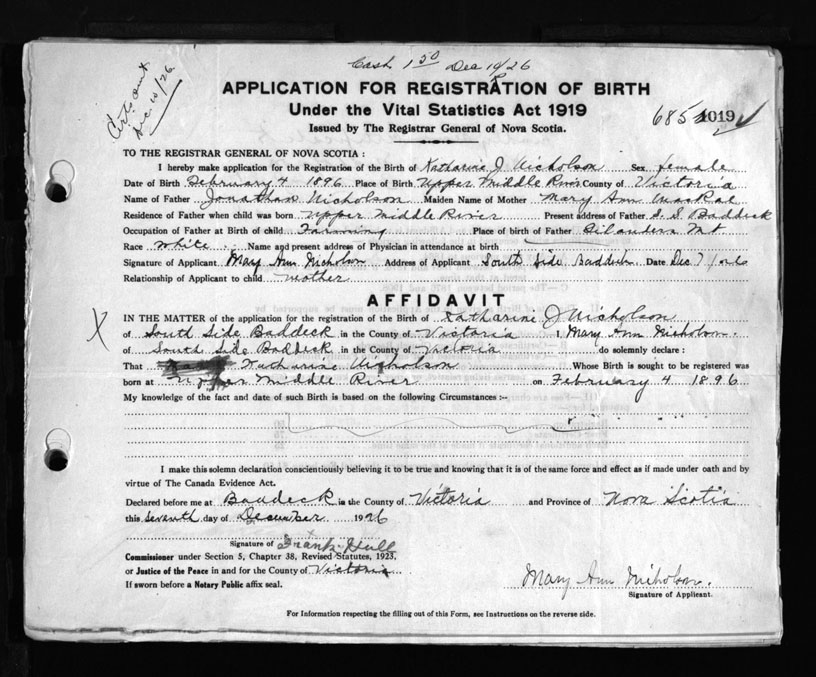 Cash 1 50 Dec 10/26
Certs out
Dec 10/26
APPLICATION FOR REGISTRATION OF BIRTH
Under the Vital Statistics Act 1919
Issued by The Registrar General of Nova Scotia.
685 1019
TO THE REGISTRAR GENERAL OF NOVA SCOTIA :
I hereby make application for the Registration of the Birth of Katharine J Nicholson Sex female
Date of Birth February 4 1896 Place of Birth Upper Middle River County of Victoria
Name of Father Jonathan Nicholson Maiden Name of Mother Mary Ann MacRae
Residence of Father when child was born Upper Middle River Present address of Father S. S. Baddeck
Occupation of Father at Birth of child Farming Place of birth of Father Mt
Race White Name and present address of Physician in attendance at birth
Signature of Applicant Mary Ann Nicholson Address of Applicant South Side Baddeck Date Dec 7/26
Relationship of Applicant to child mother
AFFIDAVIT
X
IN THE MATTER of the application for the registration of the Birth of Katharine J Nicholson
of South Side Baddeck in the County of Victoria I, Mary Ann Nicholson.
of South Side Baddeck in the County of Victoria do solemnly declare :
That Katharine Nicholson Whose Birth is sought to be registered was
born at Upper Middle River on February 4 1896
My knowledge of the fact and date of such Birth is based on the following Circumstances :-
I make this solemn declaration conscientiously believing it to be true and knowing that it is of the same force and effect as if made under oath and by
virtue of The Canada Evidence Act.
Declared before me at Baddeck in the County of Victoria and Province of Nova Scotia
this seventh day of December 1926
Signature of Frank Hull
Commissioner under Section 5, Chapter 38, Revised Statutes, 1923,
or Justice of the Peace in and for the County of Victoria
If sworn before a Notary Public affix seal.
Mary Ann Nicholson.
Signature of Applicant.
For Information respecting the filling out of this Form, see Instructions on the reverse side.